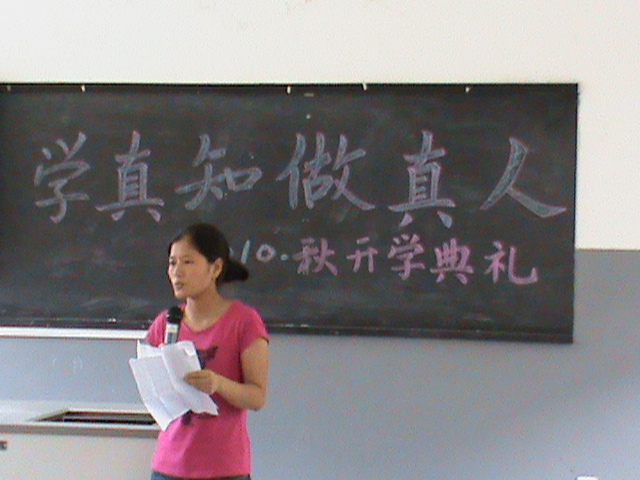 学真知做真人
10.秋开学典礼